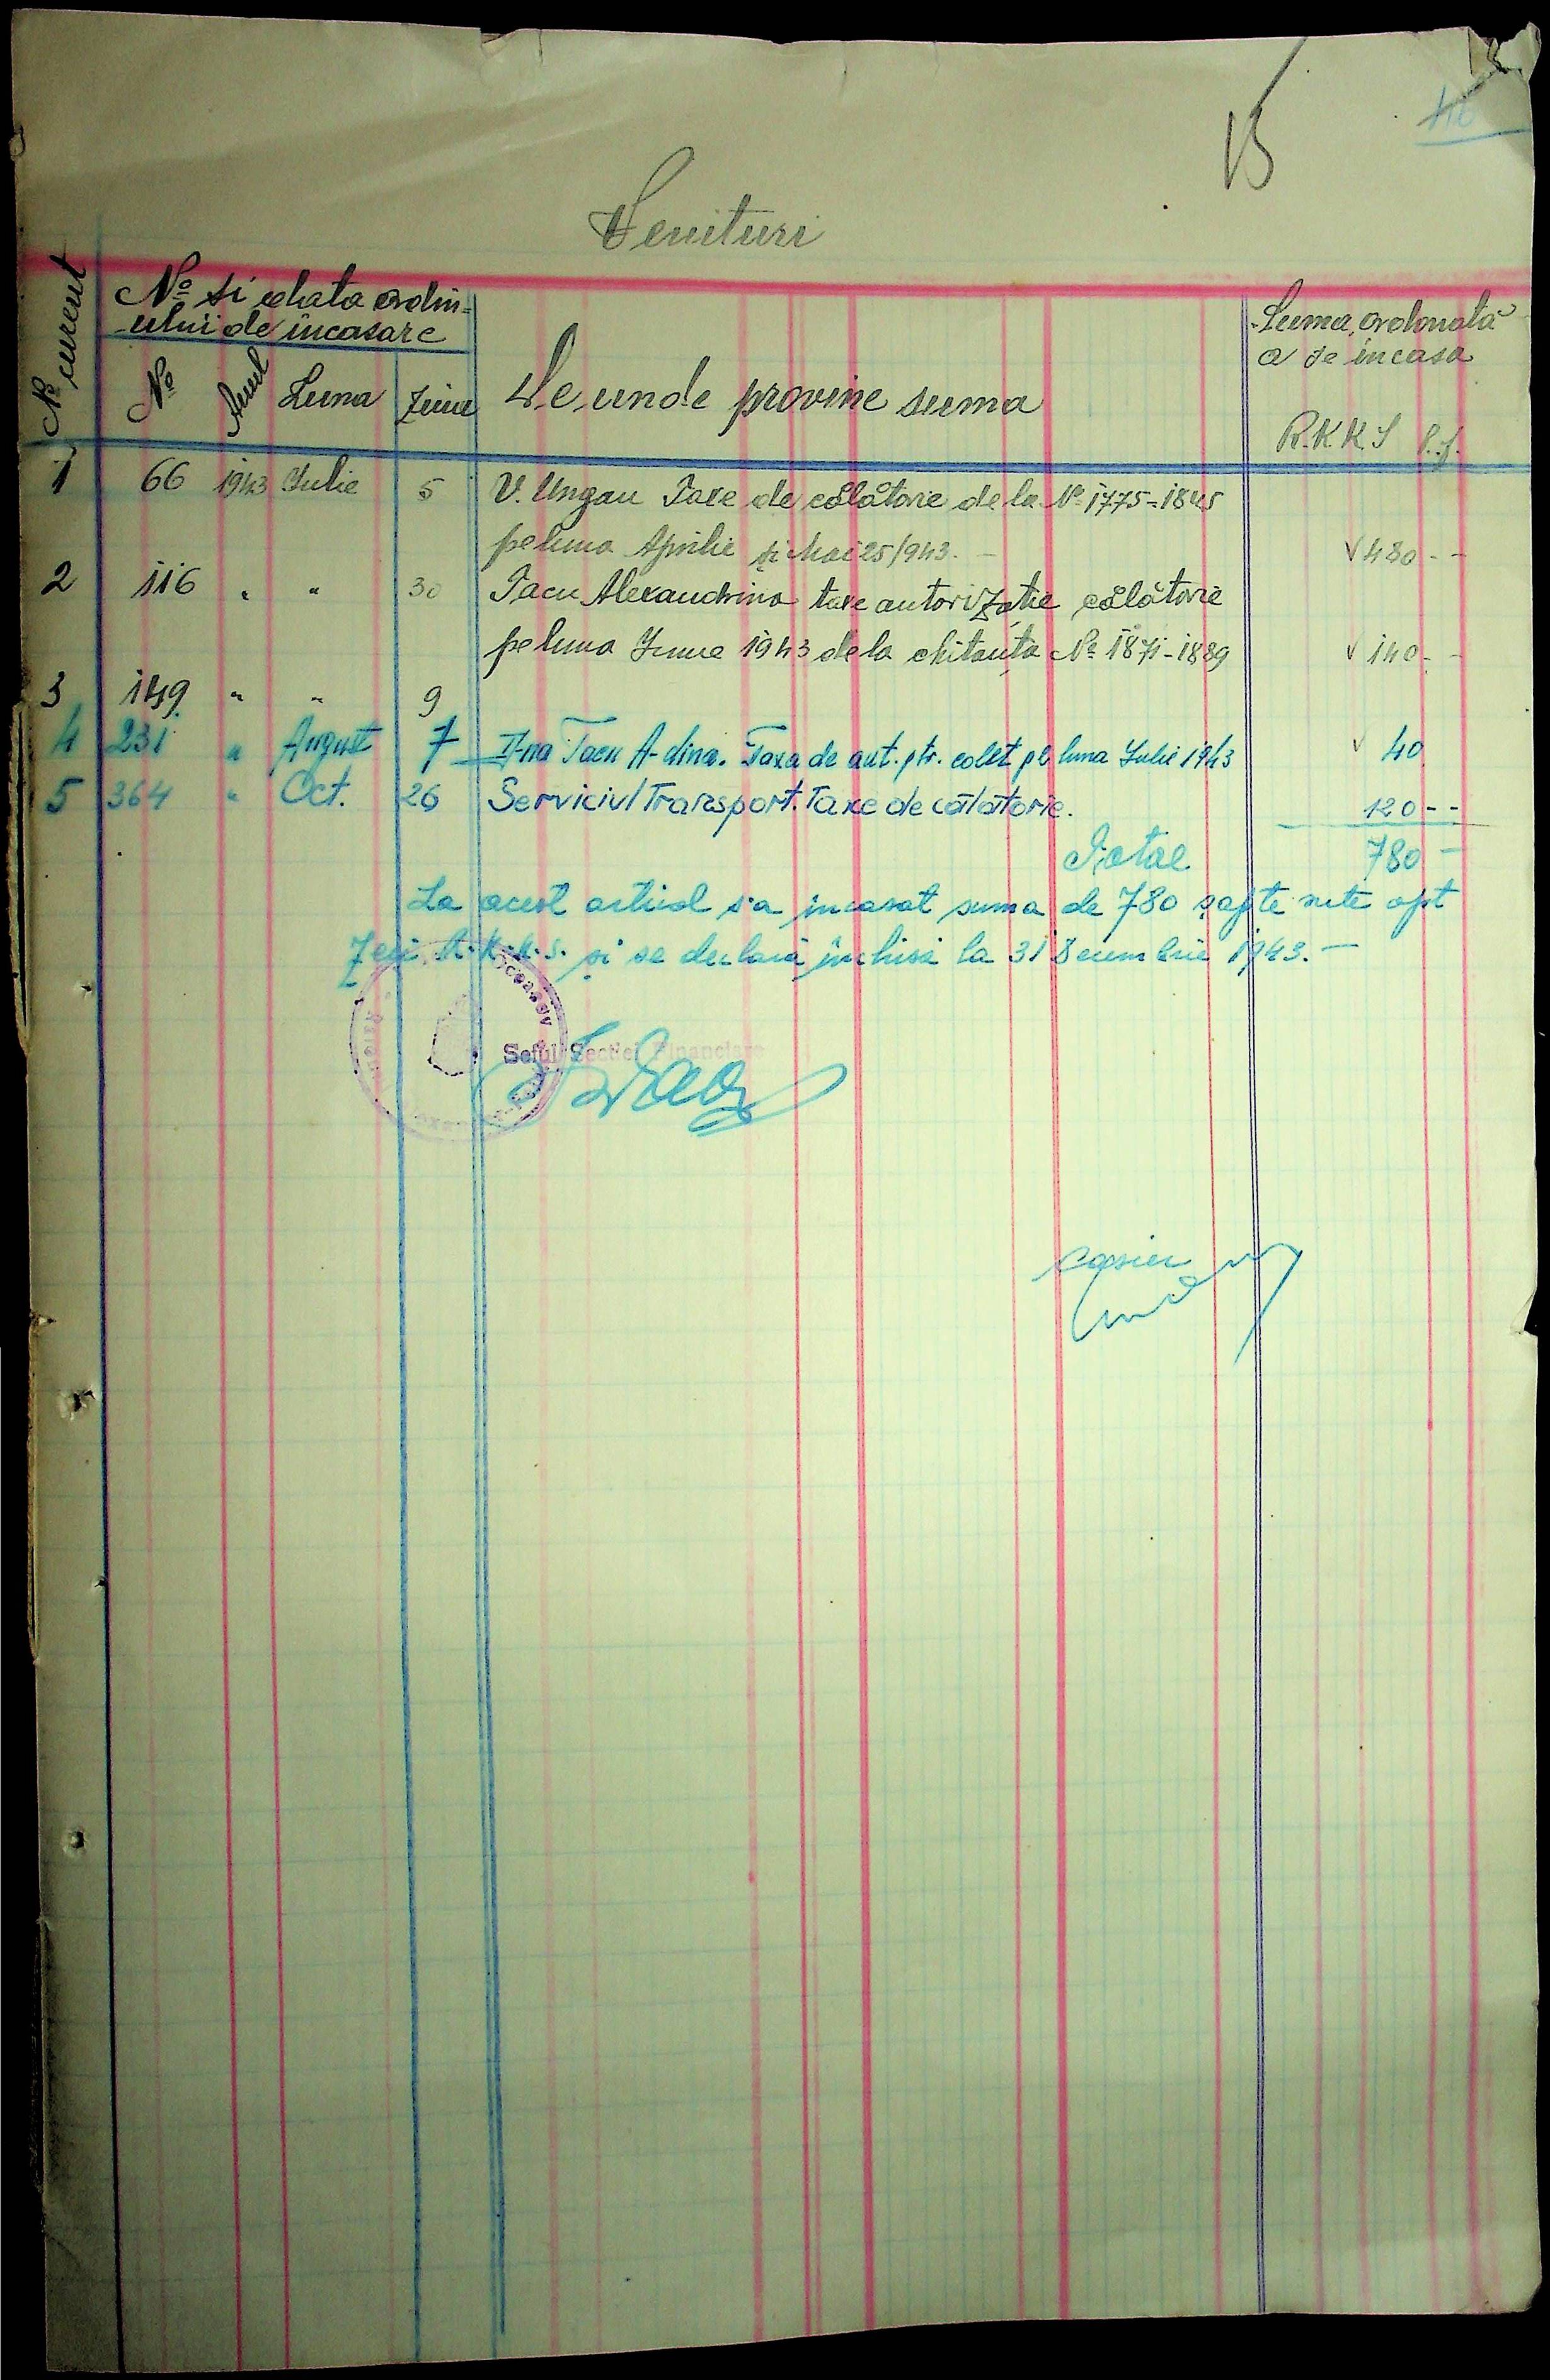 15
Venituri
No curent
No si data ordin=
ului de incasare
No
Anul
Luna
Ziua
De unde provine suma
Suma ordonată
a se incasa
R.K.K.S P.f.
1 66 1943 Iulie 5 V. Ungau Taxe de călătorie de la No 1775-1845
pe luna Aprilie și Mai 25/943. — √ 480 - -
2 116 " " 30 Tacu Alexandrina taxe autorizatie călătorie
pe luna Iunie 1943 de la chitanța No 1871-1889 √ 140 - -
3 149 " " 9
4 231 " August 7 D-na Tacu A-dina. Taxa de aut. ptr. colet pe luna Iulie 1943 √ 40
5 364 " Oct. 26 Serviciul Transport. Taxe de călătorie. 120 - -
Total 780 -
La acest articol s'a incasat suma de 780 șapte sute opt
zeci R.K.K.S. și se declară închisă la 31 Decembrie 1943. —
Seful Sectiei Financiare
Casier